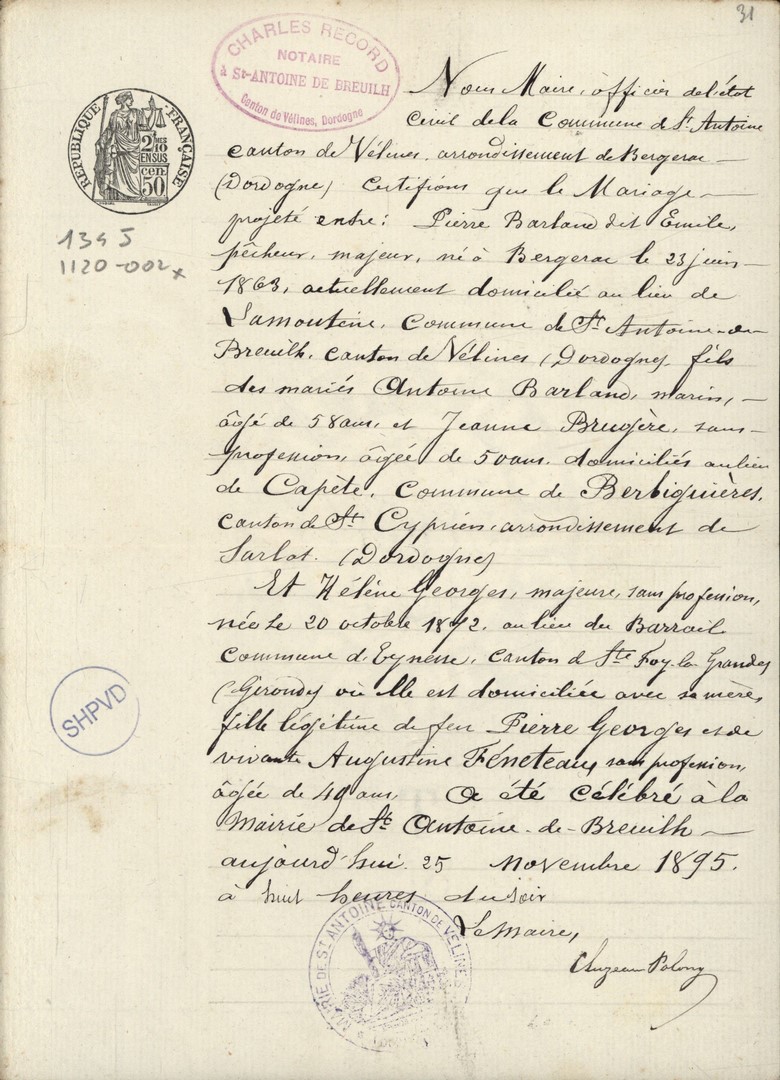 31
CHARLES RECORD
NOTAIRE
à St-ANTOINE DE BREUILH
Canton de Vélines, Dordogne
RÉPUBLIQUE FRANÇAISE
2/10
EN SUS
cen
50
1345
1120-002x
Nous Maire, officier de l'état
civil de la Commune de St Antoine
canton de Vélines, arrondissement de Bergerac —
(Dordogne) Certifions que le Mariage —
projeté entre : Pierre Barland dit Emile,
pêcheur, majeur, né à Bergerac le 23 juin —
1863, actuellement domicilié au lieu de
commune de St Antoine-de-
Breuilh, canton de Vélines (Dordogne), fils
des mariés Antoine Barland, marin, —
âgé de 58 ans, et Jeanne Brugère, sans —
profession, âgée de 50 ans, domiciliés au lieu
de Capète, commune de Berbiguières,
canton de St Cyprien, arrondissement de
Sarlat. (Dordogne)
Et Hélène Georges, majeure, sans profession,
née le 20 octobre 1872, au lieu du Barrail
commune d'Eynesse, canton de Ste Foy-la-Grande
(Gironde) où elle est domiciliée avec sa mère,
fille légitime de feu Pierre Georges et de
vivante Augustine Féneteau, sans profession,
âgée de 49 ans, a été célébré à la
Mairie de St Antoine-de-Breuilh —
aujourd'hui 25 novembre 1895.
à huit heures du soir
Le Maire,
SHPVD
MAIRIE DE ST ANTOINE CANTON DE VÉLINES